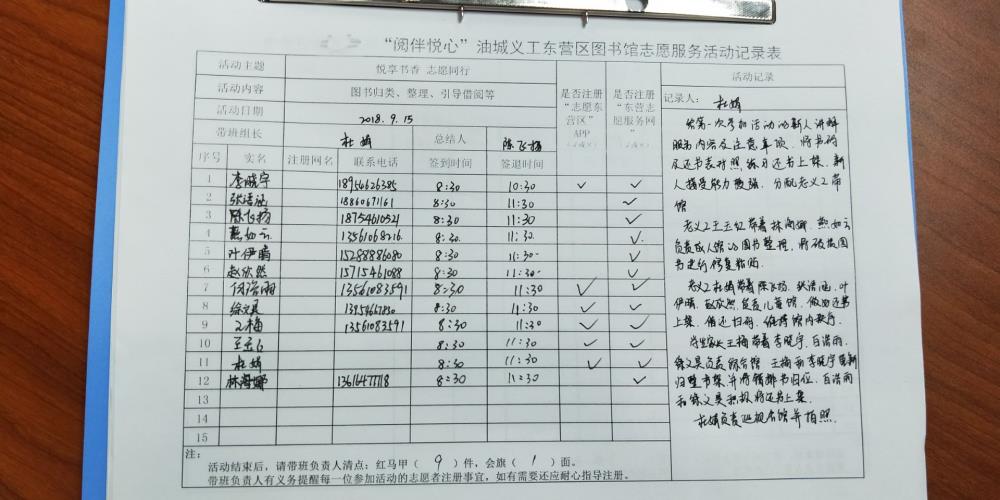 “阅伴悦心”油城义工东营区图书馆志愿服务活动记录表
活动主题 悦享书香 志愿同行
活动内容 图书归类、整理、引导借阅等
活动日期 2018.9.15
带班组长 杜娟 总结人 陈飞扬
是否注册“志愿东营区”APP
是否注册“东营志愿服务网”
活动记录
序号 实名 注册网名 联系电话 签到时间 签退时间
1 李晓宇 18954626385 8:30 10:30 ✓ ✓
2 张浩涵 18860671161 8:30 11:30 ✓
3 陈飞扬 18754610521 8:30 11:30 ✓
4 燕如云 13561068216 8:30 11:30 ✓
5 叶伊晴 15288886080 8:30 11:30 ✓
6 赵欣然 15715461088 8:30 11:30 ✓
7 13561083591 8:30 11:30 ✓ ✓
8 徐文昊 8:30 11:30 ✓ ✓
9 王梅 13561083591 8:30 11:30 ✓ ✓
10 8:30 11:30 ✓ ✓
11 杜娟 8:30 11:30 ✓ ✓
12 林海娜 8:30 11:30 ✓
13
14
15
记录人：杜娟
给第一次参加活动的新人讲解
服务内容及注意事项，将书码
及还书表对照，练习还书上架，新
人接受能力较强，分配老义工带
馆
老义工王玉红带着林海娜、燕如云
负责成人馆的图书整理，将破损图
书进行修复粘贴.
老义工杜娟带着陈飞扬、张浩涵、叶
伊晴、赵欣然负责儿童馆，做好还书
上架，借还扫码，维持馆内秩序.
王梅带着李晓宇、白浩雨、
徐文昊负责综合馆 王梅和李晓宇重新
归整书架并将错排书归位，白浩雨
和徐文昊积极将还书上架.
杜娟负责巡视各馆并拍照.
注：
活动结束后，请带班负责人清点：红马甲（ 9 ）件，会旗（ 1 ）面。
带班负责人有义务提醒每一位参加活动的志愿者注册事宜，如有需要还应耐心指导注册。